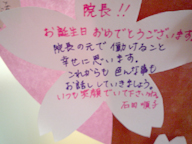 院長!!
お誕生日おめでとうございます
院長の元で働けること
幸せに思います。
これからも色んな事も
お話ししていきましょう。
いつも笑顔でいて下さいね
石田 順子